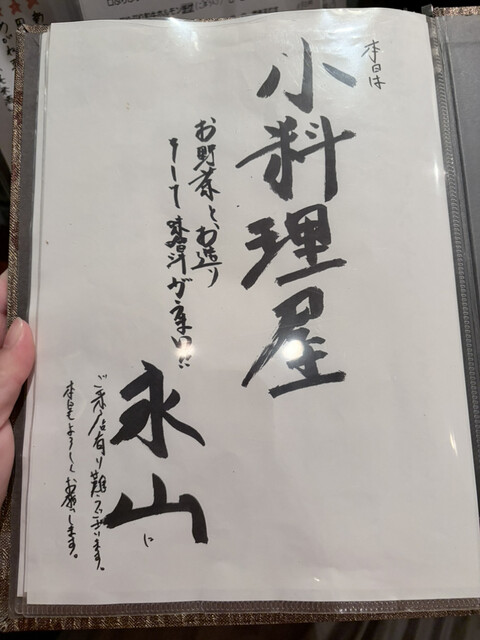 本日は
小料理屋
お野菜と、お造り
そして味噌汁がうまい!!
永山に
ご来店有り難うございます。
本日もよろしくお願いします。